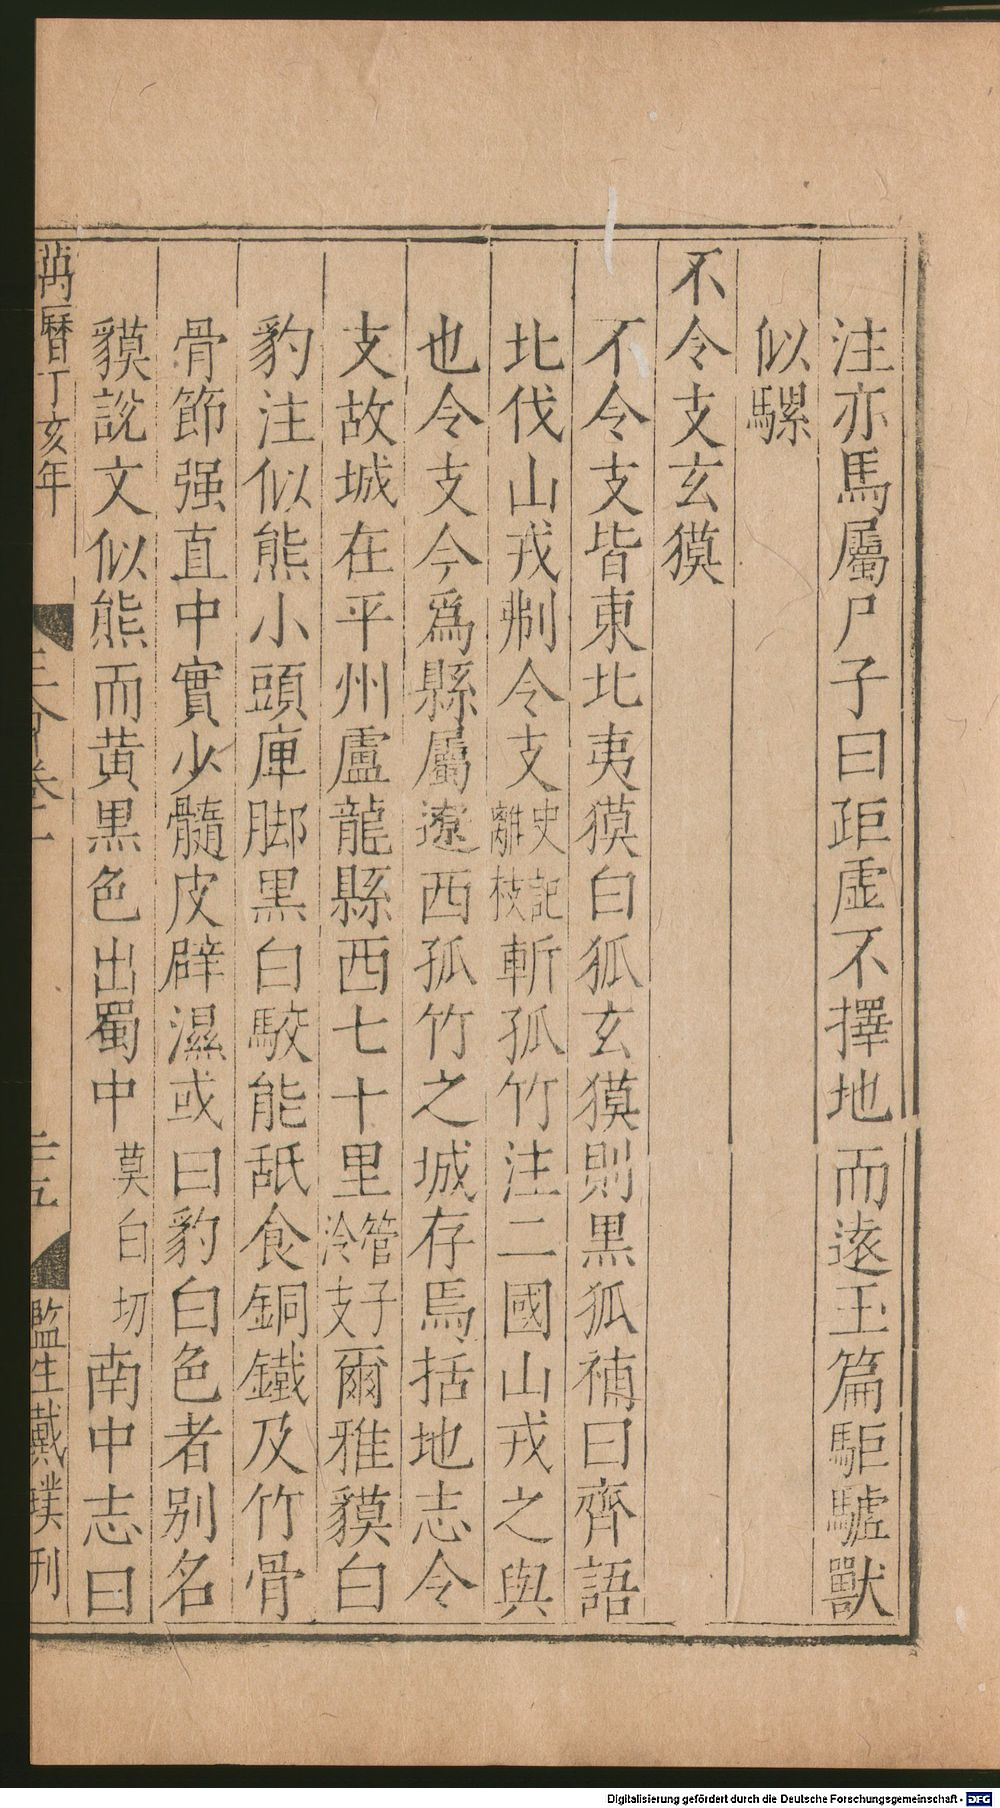 注亦馬屬尸子曰距虛不擇地而逺玉篇駏驉獸
似騾
不令支玄獏
不令支皆東北夷獏白狐玄獏則黒狐補曰齊語
北伐山戎刜令支史記離枝斬孤竹注二國山戎之與
也令支今爲縣屬遼西孤竹之城存焉括地志令
支故城在平州盧龍縣西七十里管子泠支爾雅貘白
豹注似熊小頭庳脚黒白駮能舐食銅鐵及竹骨
骨節强直中實少髓皮辟濕或曰豹白色者别名
貘說文似熊而黄黒色出蜀中莫白切南中志曰
萬曆丁亥年
卷二
二十五
監生戴璞刊
Digitalisierung gefördert durch die Deutsche Forschungsgemeinschaft - DFG